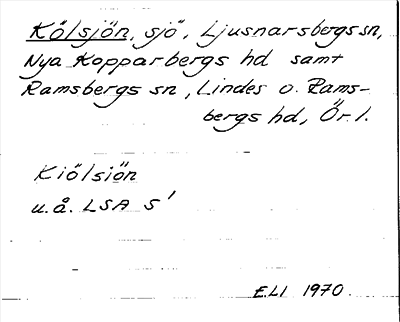 Kölsjön, sjö, Ljusnarsbergs sn,
Nya Kopparbergs hd samt
Ramsbergs sn, Lindes o. Rams-
bergs hd, Ör. l.
Kiölsiön
u.å. LSA S'
E.LI 1970